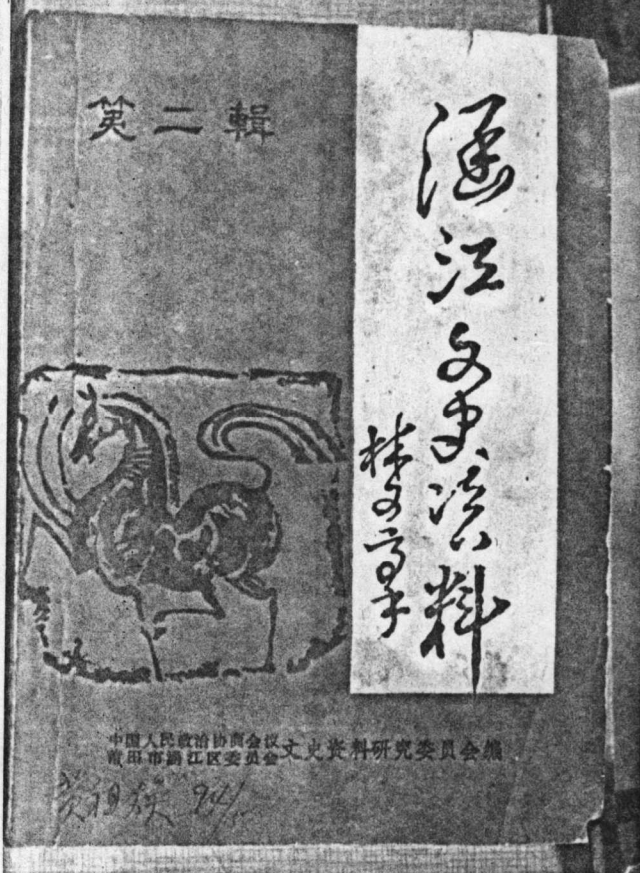 第二輯
涵江文史资料
林文豪
中国人民政治协商会议
莆田市涵江区委员会
文史资料研究委员会编